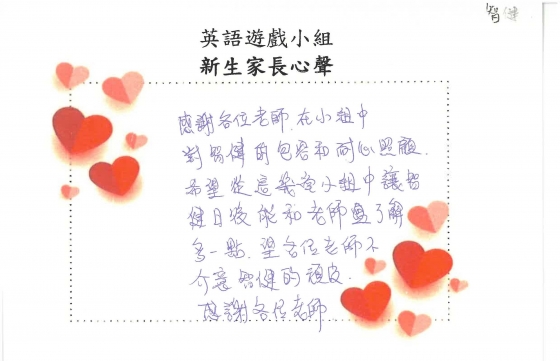 智健
英語遊戲小組
新生家長心聲
感謝各位老師.在小組中
對智健的包容和耐心照顧.
希望從這幾堂小組中讓智
健日後能和老師盡了解
多一點.望各位老師不
介意智健的頑皮.
感謝各位老師